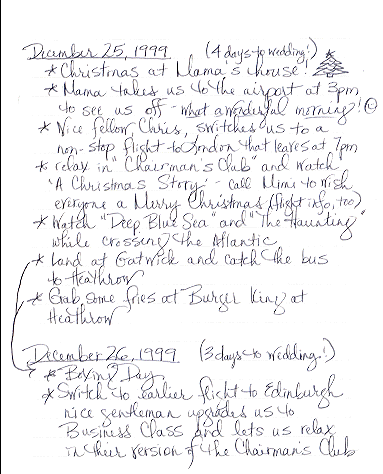 December 25, 1999 (4 days to wedding!)
* Christmas at Mama's house!
* Mama takes us to the airport at 3pm
to see us off - what a wonderful morning! ☺
* Nice fellow, Chris, switches us to a
non-stop flight to London that leaves at 7pm
* relax in "Chairman's Club" and watch
'A Christmas Story' - call Mimi to wish
everyone a Merry Christmas (flight info, too)
* Watch "Deep Blue Sea" and "The Haunting"
while crossing the Atlantic
* Land at Gatwick and catch the bus
to Heathrow
* Grab some fries at Burger King at
Heathrow
December 26, 1999 (3 days to wedding!)
* Boxing Day
* Switch to earlier flight to Edinburgh
nice gentleman upgrades us to
Business Class and lets us relax
in their version of the Chairman's Club